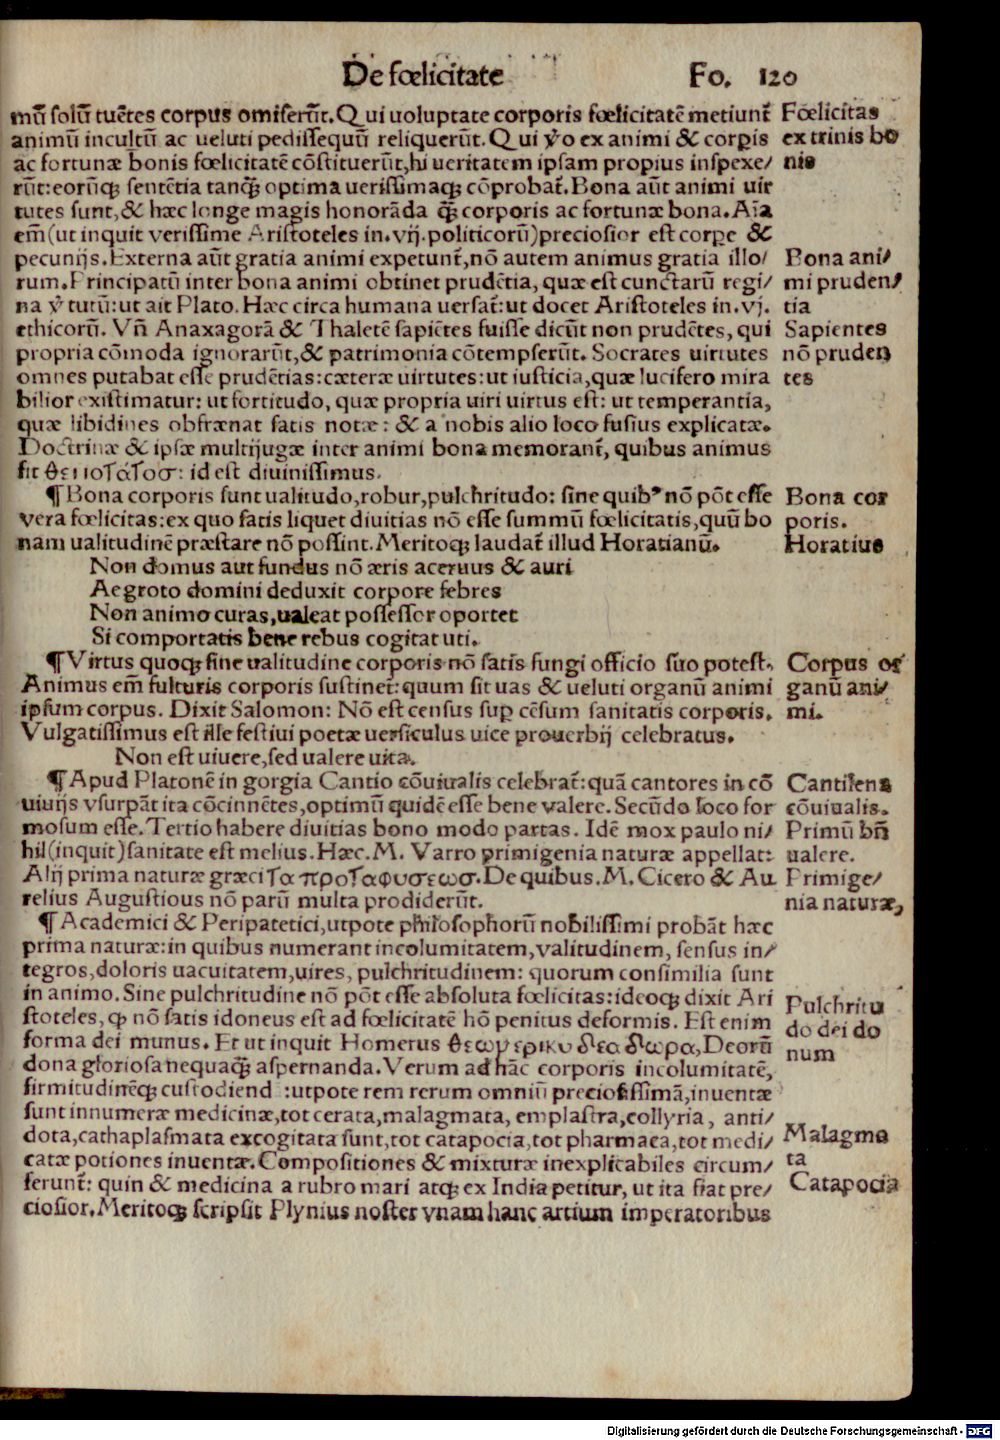 De fœlicitate
Fo. 120
mū solū tuētes corpus omiserūt. Qui uoluptate corporis fœlicitatē metiunt̄
animū incultū ac ueluti pedissequū reliquerūt. Qui ṽo ex animi & corpis
ac fortunæ bonis fœlicitatē cōstituerūt, hi ueritatem ipsam propius inspexe/
rūt: eorūqꝫ sentētia tanqꝫ̄ optima uerissimaqꝫ cōprobat̄. Bona aūt animi uir
tutes sunt, & hæc longe magis honorāda qꝫ̄ corporis ac fortunæ bona. Aīa
em̄ (ut inquit verissime Aristoteles in. vij. politicorū) preciosior est corpe &
pecunijs. Externa aūt gratia animi expetunt̄, nō autem animus gratia illo/
rum. Principatū inter bona animi obtinet prudētia, quæ est cunctarū regi/
na ṽtutū: ut ait Plato. Hæc circa humana uersat̄: ut docet Aristoteles in. vj.
ethicorū. Vñ Anaxagorā & Thaletē sapiētes fuisse dicūt non prudētes, qui
propria cōmoda ignorarūt, & patrimonia cōtempserūt. Socrates uirtutes
omnes putabat esse prudētias: cæteræ uirtutes: ut iusticia, quæ lucifero mira
bilior existimatur: ut fortitudo, quæ propria uiri uirtus est: ut temperantia,
quæ libidines obfrænat satis notæ: & a nobis alio loco fusius explicatæ.
Doctrinæ & ipsæ multijugæ inter animi bona memorant̄, quibus animus
fit θειιοτάτοσ: id est diuinissimus.
¶ Bona corporis sunt ualitudo, robur, pulchritudo: sine quibꝰ nō pōt esse
vera fœlicitas: ex quo satis liquet diuitias nō esse summū fœlicitatis, quū bo
nam ualitudinē præstare nō possint. Meritoqꝫ laudat̄ illud Horatianū.
Non domus aut fundus nō æris aceruus & auri
Aegroto domini deduxit corpore febres
Non animo curas, ualeat possessor oportet
Si comportatis bene rebus cogitat uti.
¶ Virtus quoqꝫ sine ualitudine corporis nō satis fungi officio suo potest.
Animus em̄ fulturis corporis sustinet̄: quum sit uas & ueluti organū animi
ipsum corpus. Dixit Salomon: Nō est census sup cēsum sanitatis corporis.
Vulgatissimus est ille festiui poetæ uersiculus uice prouerbij celebratus.
Non est uiuere, sed ualere uita.
¶ Apud Platonē in gorgia Cantio cōuiualis celebrat̄: quā cantores in cō
uiuijs vsurpāt ita cōcinnētes, optimū quidē esse bene valere. Secūdo loco for
mosum esse. Tertio habere diuitias bono modo partas. Idē mox paulo ni/
hil (inquit) sanitate est melius. Hæc. M. Varro primigenia naturæ appellat:
Alij prima naturæ græci τα προταφυσεωσ. De quibus. M. Cicero & Au
relius Augustious nō parū multa prodiderūt.
¶ Academici & Peripatetici, utpote philosophorū nobilissimi probāt hæc
prima naturæ: in quibus numerant incolumitatem, valitudinem, sensus in/
tegros, doloris uacuitatem, uires, pulchritudinem: quorum consimilia sunt
in animo. Sine pulchritudine nō pōt esse absoluta fœlicitas: ideoqꝫ dixit Ari
stoteles, ꝙ nō satis idoneus est ad fœlicitatē hō penitus deformis. Est enim
forma dei munus. Et ut inquit Homerus δεα δωρα, Deorū
dona gloriosa nequaqꝫ̄ aspernanda. Verum ad hāc corporis incolumitatē,
firmitudinēqꝫ custodiend : utpote rem rerum omniū preciosissimā, inuentæ
sunt innumeræ medicinæ, tot cerata, malagmata, emplastra, collyria, anti/
dota, cathaplasmata excogitata sunt, tot catapocia, tot pharmaca, tot medi/
catæ potiones inuentæ. Compositiones & mixturæ inexplicabiles circum/
ferunt̄: quin & medicina a rubro mari atqꝫ ex India petitur, ut ita fiat pre/
ciosior. Meritoqꝫ scripsit Plynius noster vnam hanc artium imperatoribus
Fœlicitas
ex trinis bo
nis
Bona ani/
mi pruden/
tia
Sapientes
nō pruden
tes
Bona cor
poris.
Horatius
Corpus or
ganū ani/
mi.
Cantilena
cōuiualis.
Primū bñ
ualere.
Primige/
nia naturæ,
Pulchritu
do dei do
num
Malagma
ta
Catapocia
Digitalisierung gefördert durch die Deutsche Forschungsgemeinschaft - DFG